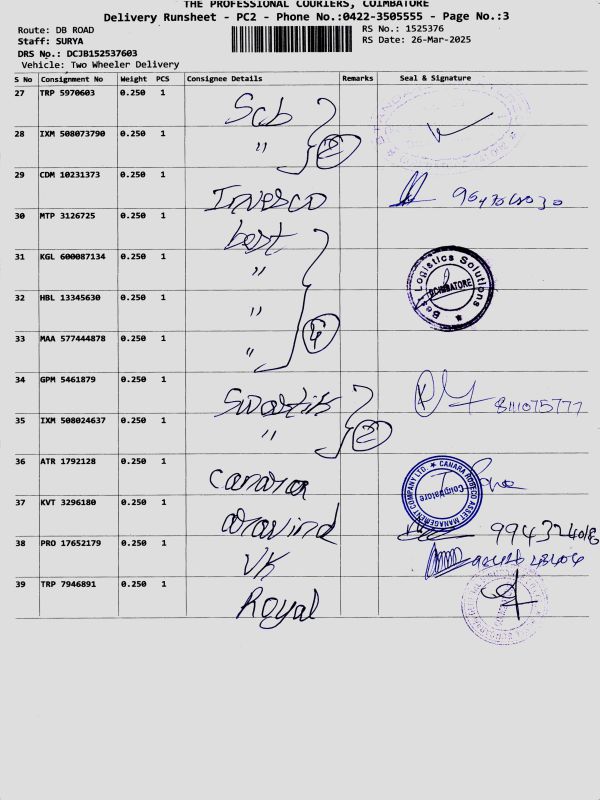 THE PROFESSIONAL COURIERS, COIMBATORE
Delivery Runsheet - PC2 - Phone No.:0422-3505555 - Page No.:3
Route: DB ROAD RS No.: 1525376
Staff: SURYA RS Date: 26-Mar-2025
DRS No.: DCJB152537603
Vehicle: Two Wheeler Delivery
S No Consignment No Weight PCS Consignee Details Remarks Seal & Signature
27 TRP 5970603 0.250 1 Scb
28 IXM 508073790 0.250 1 " 2
29 CDM 10231373 0.250 1 Invesco
30 MTP 3126725 0.250 1 best
31 KGL 600087134 0.250 1 " Best Logistics Solutions COIMBATORE
32 HBL 13345630 0.250 1 "
33 MAA 577444878 0.250 1 " 4
34 GPM 5461879 0.250 1 Swastik 8111075777
35 IXM 508024637 0.250 1 " 2
36 ATR 1792128 0.250 1 Canara CANARA ROBECO ASSET MANAGEMENT COMPANY LTD. Coimbatore
37 KVT 3296180 0.250 1 aravind
38 PRO 17652179 0.250 1 VK
39 TRP 7946891 0.250 1 Royal